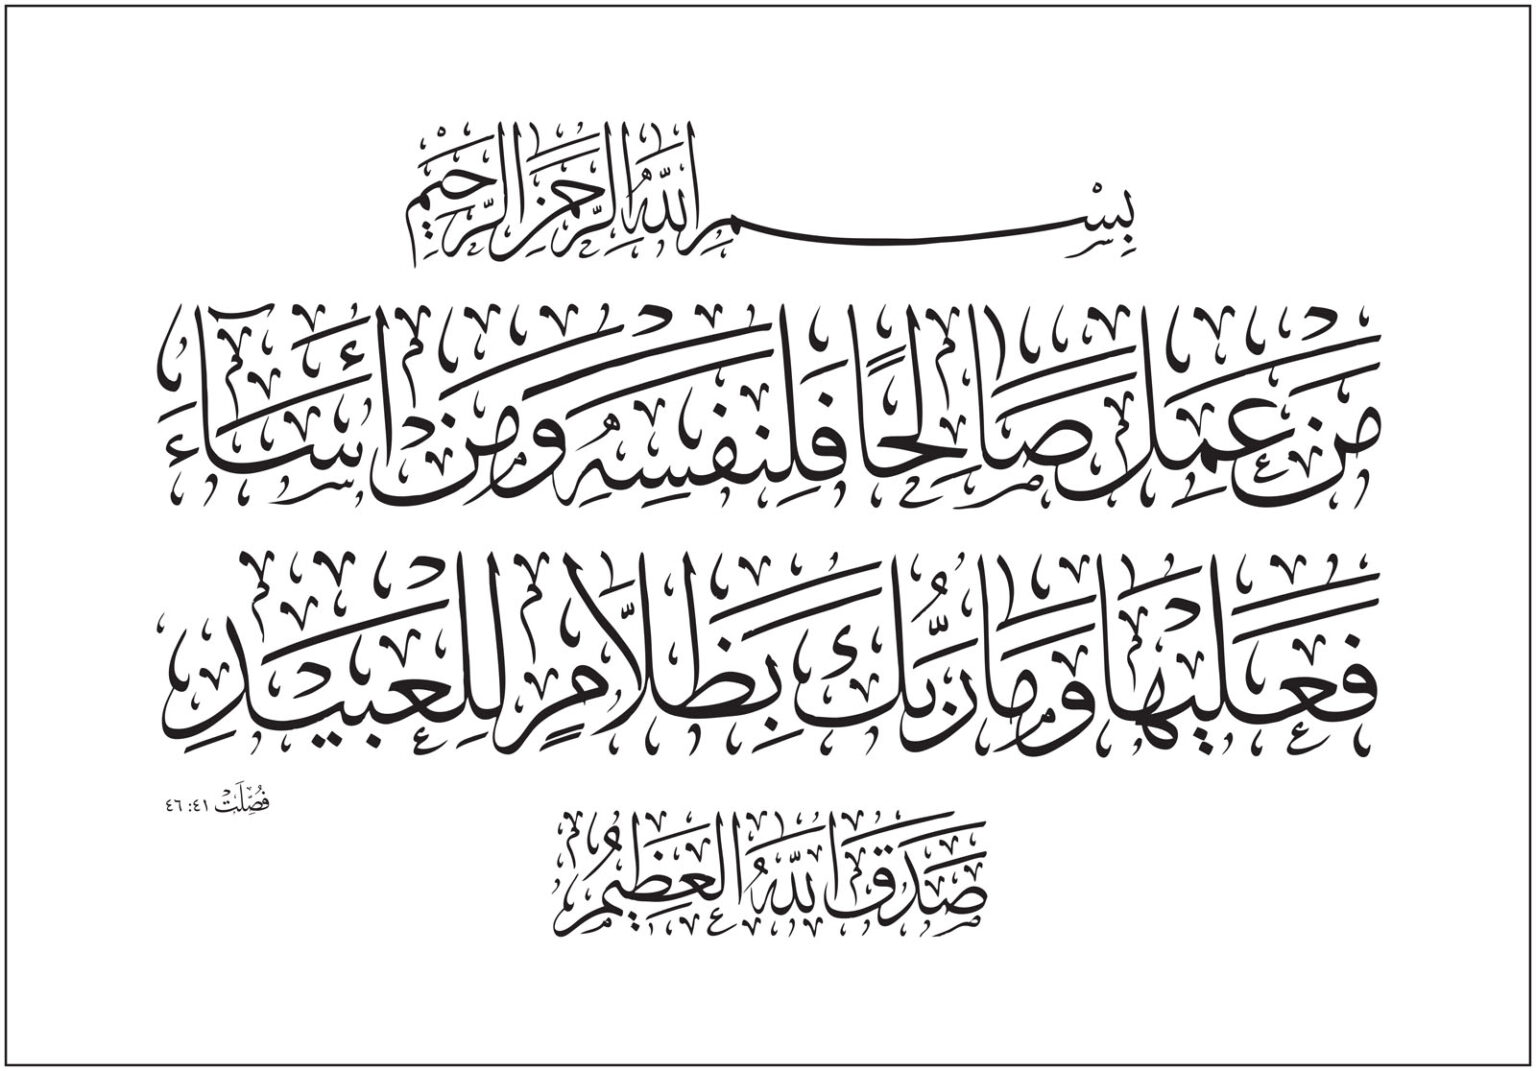 بِسْمِ اللَّهِ الرَّحْمَٰنِ الرَّحِيمِ
مَنْ عَمِلَ صَالِحًا فَلِنَفْسِهِ وَمَنْ أَسَآءَ
فَعَلَيْهَا وَمَا رَبُّكَ بِظَلَّامٍ لِلْعَبِيدِ
فُصِّلَتْ ٤١: ٤٦
صَدَقَ اللَّهُ الْعَظِيمُ